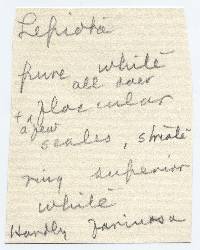 Lepiota
pure white
all over
+ floccular
+ a few
scales, striate
ring superior
white
Hardly farinose